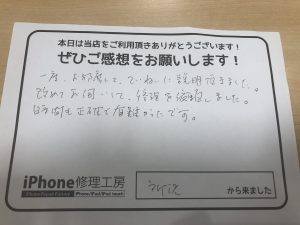 本日は当店をご利用頂きありがとうございます！
ぜひご感想をお願いします！
一度、お邪魔して、ていねいに説明頂きました。
改めてお伺いして、修理を依頼しました。
時間も正確で有難かったです。
iPhone修理工房
iPhone Repair Factory iPhone/iPad/iPod touch
から来ました